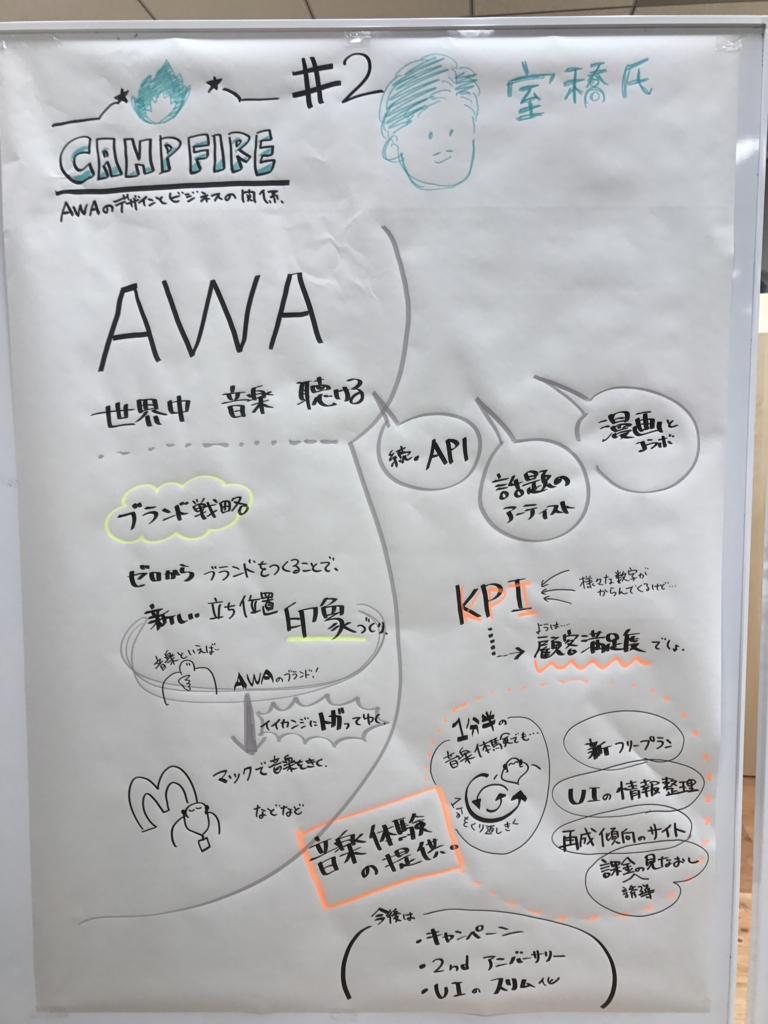 CAMPFIRE
#2
室橋氏
AWAのデザインとビジネスの関係、
AWA
世界中 音楽 聴ける
続。API
話題の
アーティスト
漫画と
コラボ
ブランド戦略
ゼロから ブランドをつくることで、
新しい 立ち位置 印象づくり、
音楽といえば…
AWAのブランド!
イイカンジにトガってゆく、
マックで音楽をきく、
などなど
KPI
様々な数字が
からんでくるけど…
ようは…
顧客満足度 でしょ。
1分半の
音楽体験でも…
くり返しきく
新フリープラン
UIの情報整理
傾向のサイト
課金の見なおし
誘導
音楽体験
の提供。
今後は
・キャンペーン
・2nd アニバーサリー
・UIの スリム化